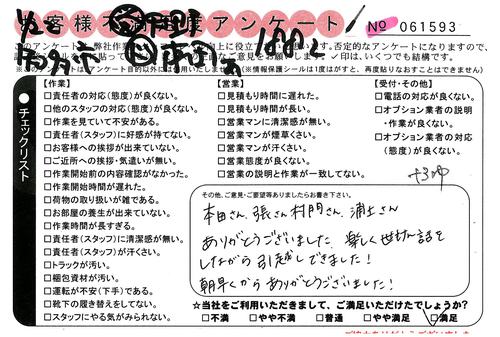 お客様不満足業アンケート
No 061593
1882
このアンケートは弊社作業
✓印は、いくつでも結構です。
【作業】
□責任者の対応(態度)が良くない。
□他のスタッフの対応(態度)が良くない。
□作業を見ていて不安がある。
□責任者(スタッフ)に好感が持てない。
□お客様への挨拶が出来ていない。
□ご近所への挨拶・気遣いが無い。
□作業開始前の内容確認がなかった。
□作業開始時間が遅れた。
□荷物の取り扱いが雑である。
□お部屋の養生が出来ていない。
□作業時間が長すぎる。
□責任者(スタッフ)に清潔感が無い。
□責任者(スタッフ)が汗くさい。
□トラックが汚い。
□梱包資材が汚い。
□運転が不安(下手)である。
□靴下の履き替えをしてない。
□スタッフにやる気がみられない。
【営業】
□見積もり時間に遅れた。
□見積もり時間が長い。
□営業マンに清潔感が無い。
□営業マンが煙草くさい。
□営業マンが汗くさい。
□営業態度が良くない。
□営業の説明と作業が一致してない。
【受付・その他】
□電話の対応が良くない。
□オプション業者の説明
・作業が良くない。
□オプション業者の対応
(態度)が良くない。
●チェックリスト
その他、ご意見・ご要望等ありましたらお書き下さい。
本田さん、張さん 村門さん、浦土さん
ありがとうございました。楽しく世間話を
しながら引越しできました!
朝早くから ありがとうございました!
☆当社をご利用いただきまして、ご満足いただけたでしょうか?
□不満 □やや不満 □普通 □やや満足 □満足